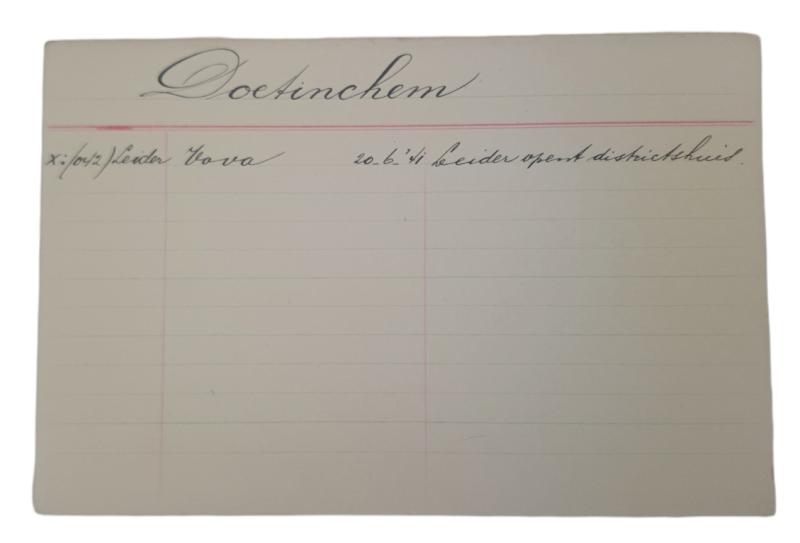 Doetinchem
x:(042) Leider Vova 20-6-'41 Leider opent districtshuis.